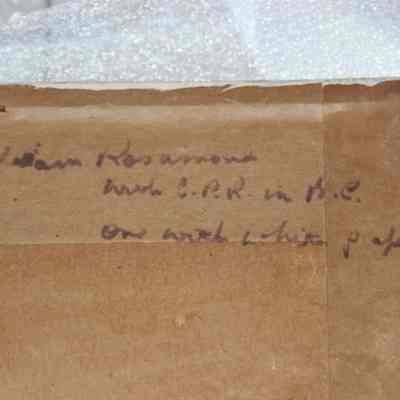 Rosamond
with C.P.R. in B.C.
one with white